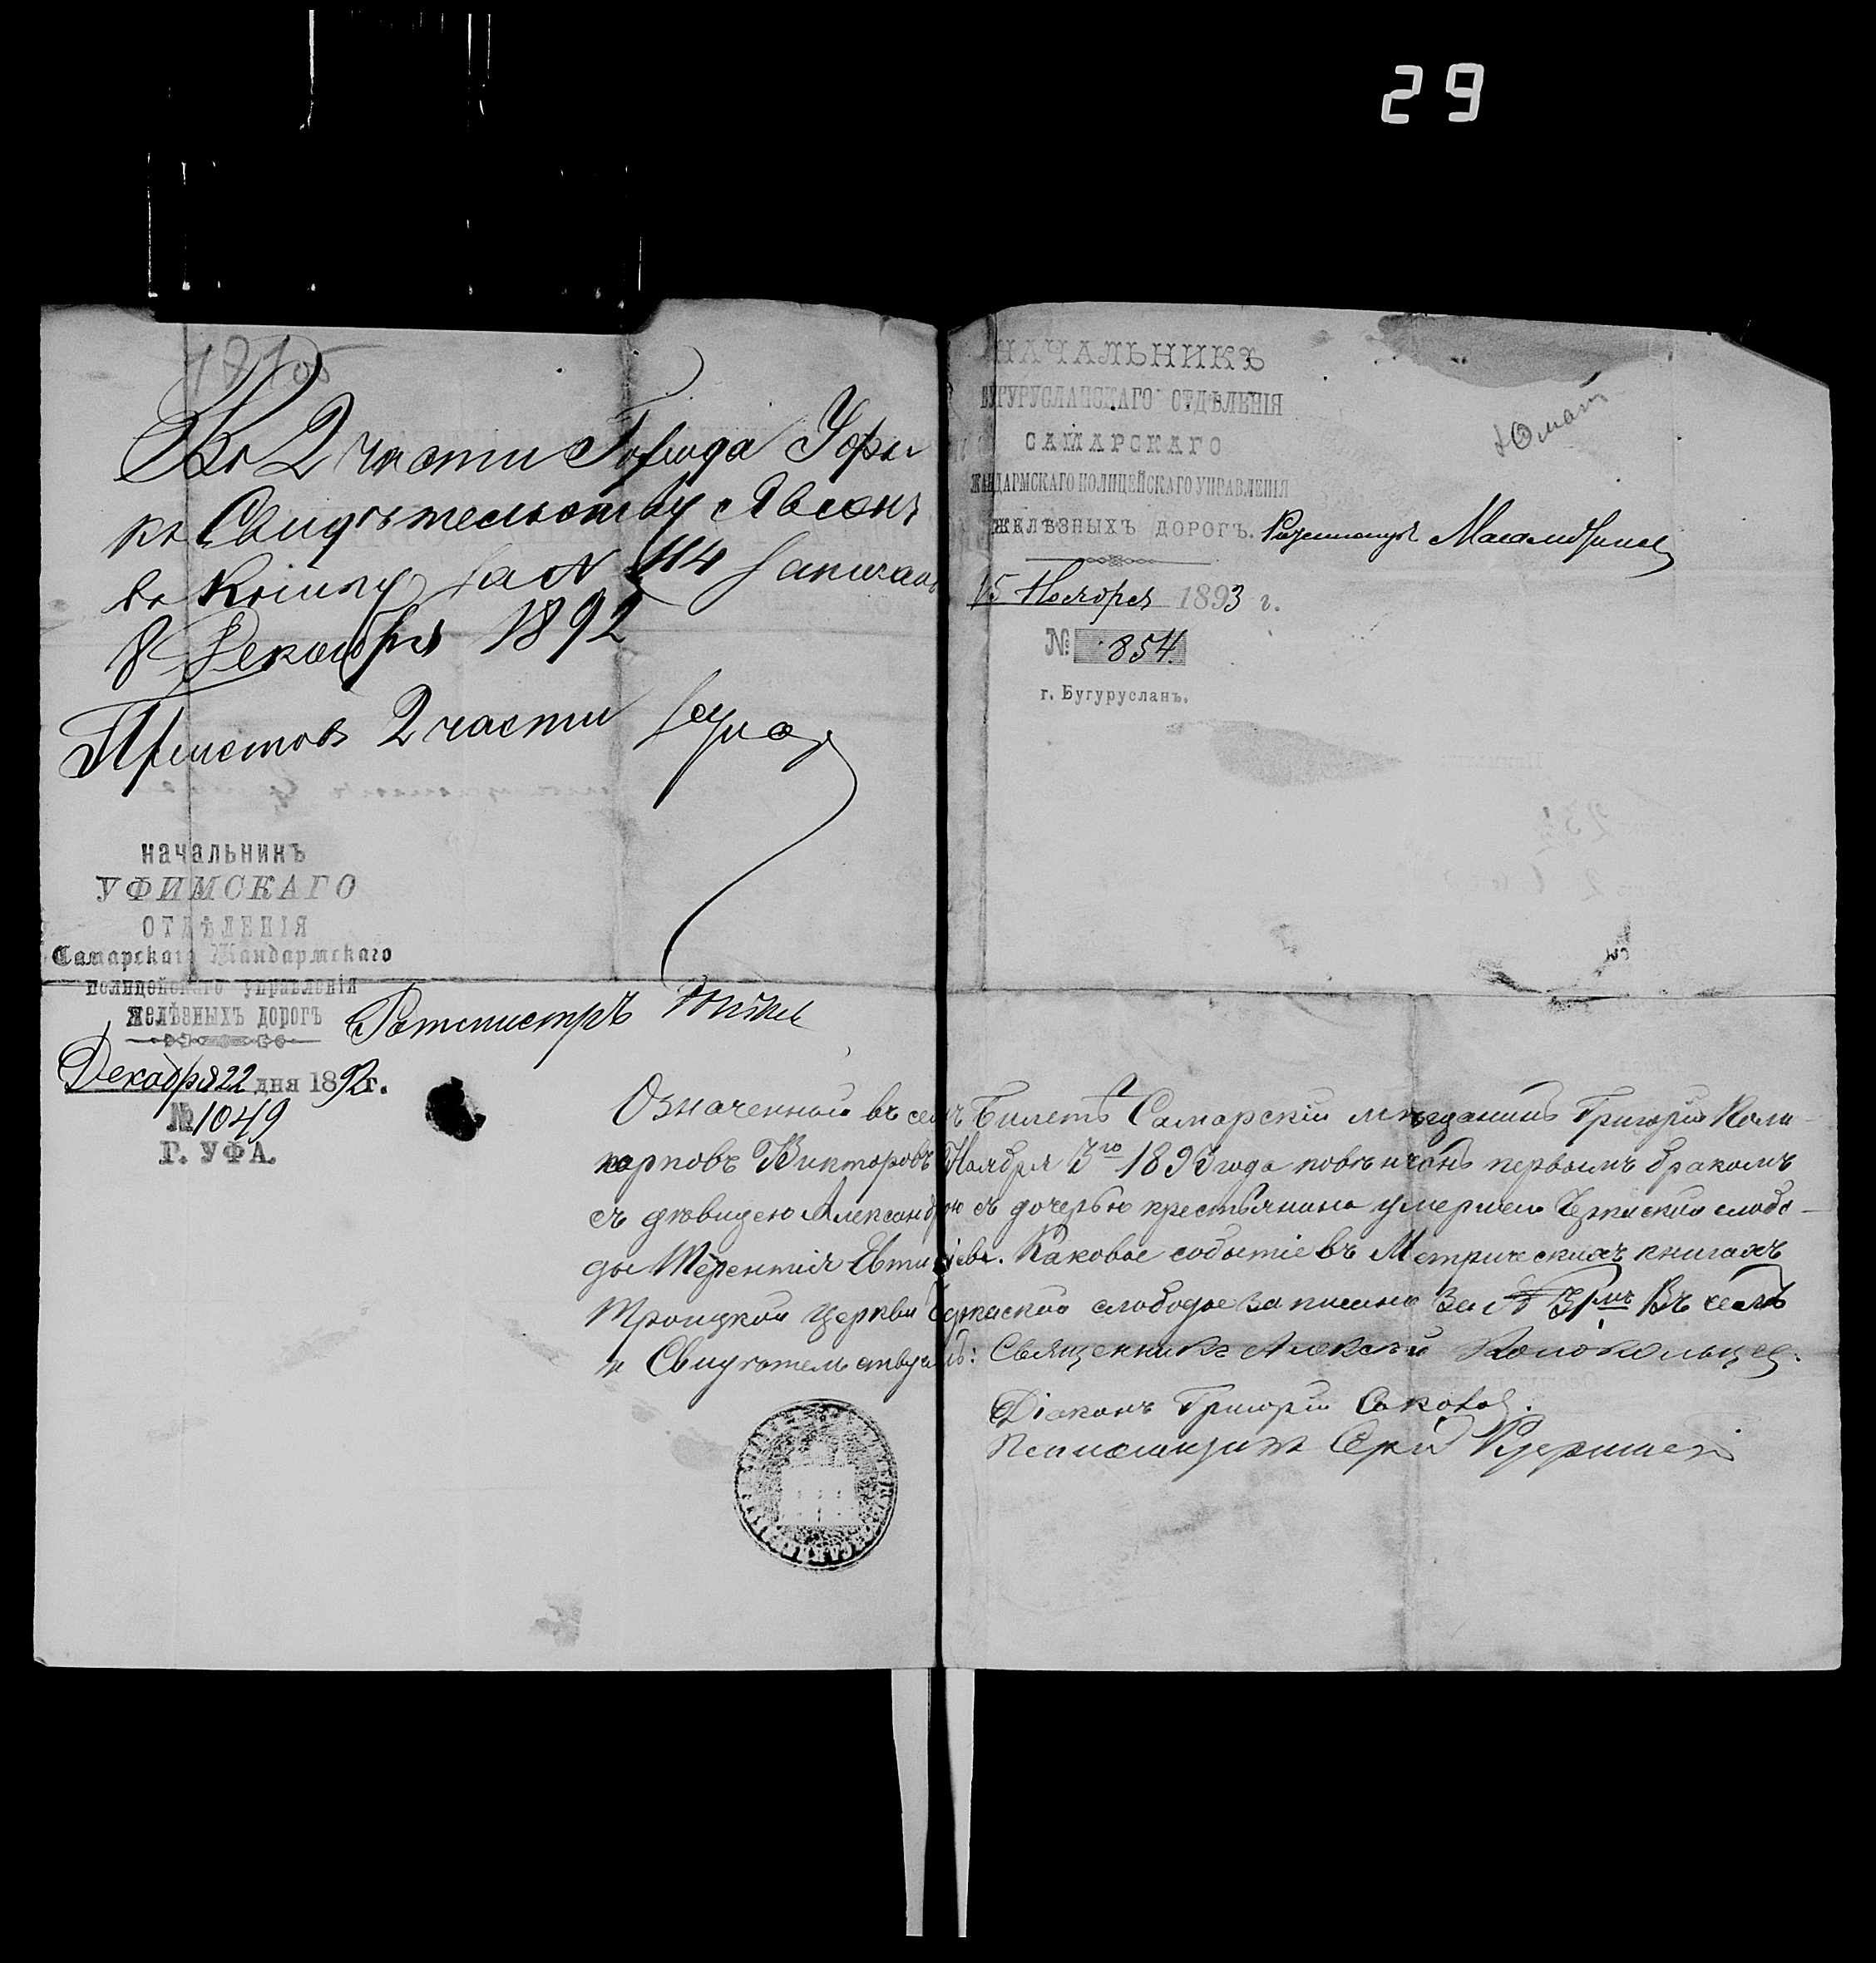 29
Во 2 части Города Уфы
къ Свидѣтельству явленъ
въ книгу за № 114 записанъ
8 Декабря 1892
Приставъ 2 части
НАЧАЛЬНИКЪ
УФИМСКАГО
ОТДѢЛЕНІЯ
Самарскаго Жандармскаго
полицейскаго управленія
желѣзныхъ дорогъ
Ротмистръ
Декабря 22 дня 1892 г.
№ 1049
Г. УФА.
НАЧАЛЬНИКЪ
БУГУРУСЛАНСКАГО ОТДѢЛЕНІЯ
САМАРСКАГО
ЖАНДАРМСКАГО ПОЛИЦЕЙСКАГО УПРАВЛЕНІЯ
ЖЕЛѢЗНЫХЪ ДОРОГЪ.
15 Ноября 1893 г.
№ 854.
г. Бугурусланъ.
Означенный въ семъ билетѣ Самарскій мѣщанинъ Григорій Поли-
карповъ Викторовъ Ноября 3го 1893 года повѣнчанъ первымъ бракомъ
съ дѣвицею Александрою съ дочерью крестьянина умершего слобо-
ды Терентія Евтихіева. Каковое событіе въ Метрическихъ книгахъ
Троицкой церкви слободы записано за № 31мъ Въ семъ
и Свидѣтельствуемъ: Священникъ Алексѣй Колокольцев.
Діаконъ Григорій Соколов.
Псаломщикъ